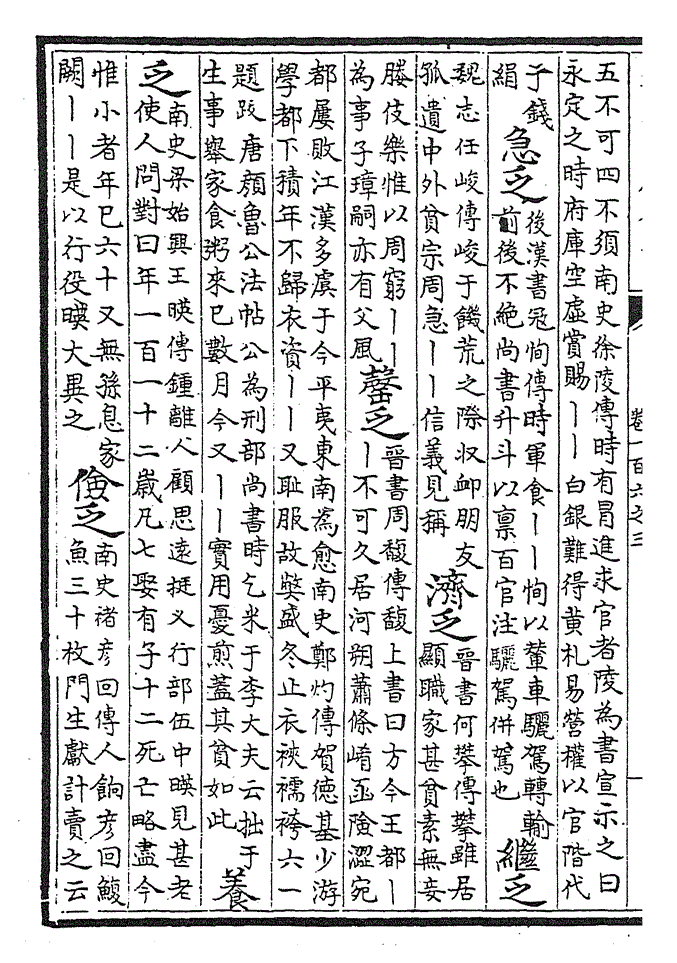 五不可四不須南史徐陵傳時有冒進求官者陵為書宣示之曰
永定之時府庫空虛賞賜丨丨白銀難得黄札易營權以官階代
子錢
絹
急乏
後漢書冦恂傳時軍食丨丨恂以輦車驪駕轉輸
前後不絶尚書升斗以禀百官注驪駕併駕也
繼乏
魏志任峻傳峻于饑荒之際収卹朋友
孤遺中外貧宗周急丨丨信義見稱
濟乏
晉書何攀傳攀雖居
顯職家甚貧素無妾
媵伎樂惟以周窮丨丨
為事子璋嗣亦有父風
罄乏
晉書周馥傳馥上書曰方今王都丨
丨不可久居河朔蕭條崤函險澀宛
都屢敗江漢多虞于今平夷東南為愈南史鄭灼傳賀德基少游
學都下積年不歸衣資丨丨又恥服故獘盛冬止衣裌襦袴六一
題跋唐顔魯公法帖公為刑部尚書時乞米于李大夫云拙于
生事舉家食粥來已數月今又丨丨實用憂煎蓋其貧如此
養
乏
南史梁始興王暎傳鍾離人顧思遠挺义行部伍中暎見甚老
使人問對曰年一百一十二歲凡七娶有子十二死亡略盡今
惟小者年已六十又無孫息家
闕丨丨是以行役暎大異之
儉乏
南史禇彦回傳人餉彦回鰒
魚三十枚門生獻計賣之云
卷一百六之三